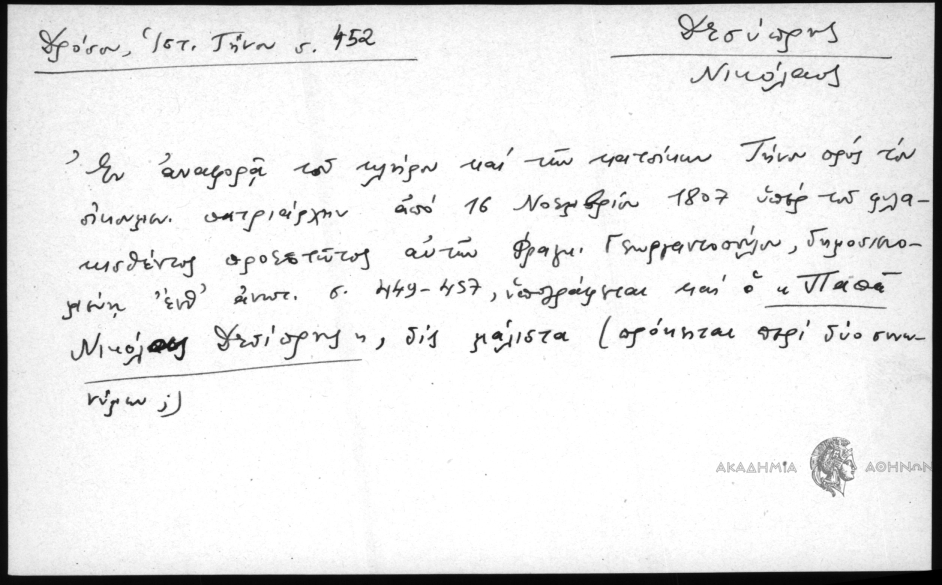 Δρόσου, Ἱστ. Τήνου σ. 452
Δεσύπρης
Νικόλαος
Ἐν ἀναφορᾷ τοῦ κλήρου καὶ τῶν κατοίκων Τήνου πρὸς τὸν
οἰκουμεν. πατριάρχην ἀπὸ 16 Νοεμβρίου 1807 ὑπὲρ τοῦ φυλα-
κισθέντος προεστῶτος αὐτῶν Φραγκ. Γεωργαντοπούλου, δημοσιευο-
μένῃ ἔνθ' ἀνωτ. σ. 449-457, ὑπογράφεται καὶ ὁ «Παπᾶ
Νικόλαος Δεσίπρης», δὶς μάλιστα (πρόκειται περὶ δύο συνω-
νύμων;)
ΑΚΑΔΗΜΙΑ ΑΘΗΝΩΝ